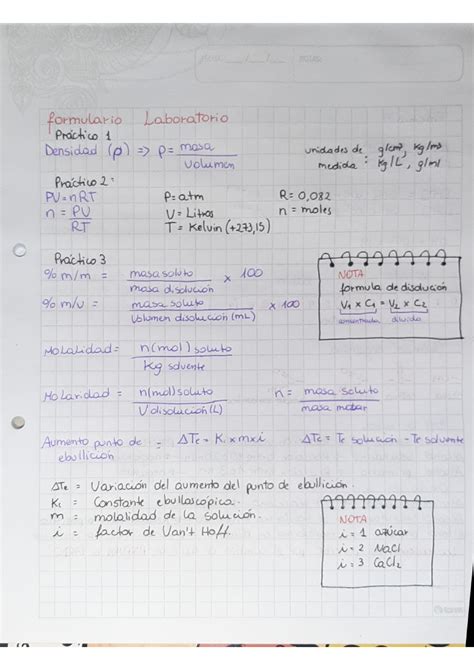 formulario Laboratorio
Práctico 1
Densidad (ρ) => ρ = masa / volumen
unidades de medida : g/cm³, kg/m³ kg/L, g/ml
Práctico 2:
PV = nRT P = atm R = 0,082
n = PV / RT V = Litros n = moles
T = Kelvin (+273,15)
Práctico 3
% m/m = masa soluto / masa disolución x 100
% m/v = masa soluto / Volumen disolución (mL) x 100
NOTA
formula de disolución
V₁ x C₁ = V₂ x C₂
concentrada diluida
Molalidad = n(mol) soluto / Kg solvente
Molaridad = n(mol) soluto / V disolución (L)
n = masa soluto / masa molar
Aumento punto de ebullición = ΔTe = K. x m x i ΔTe = Te solución - Te solvente
ΔTe = Variación del aumento del punto de ebullición.
K = Constante ebulloscópica.
m = molalidad de la solución.
i = factor de Van't Hoff.
NOTA
i = 1 azúcar
i = 2 NaCl
i = 3 CaCl₂